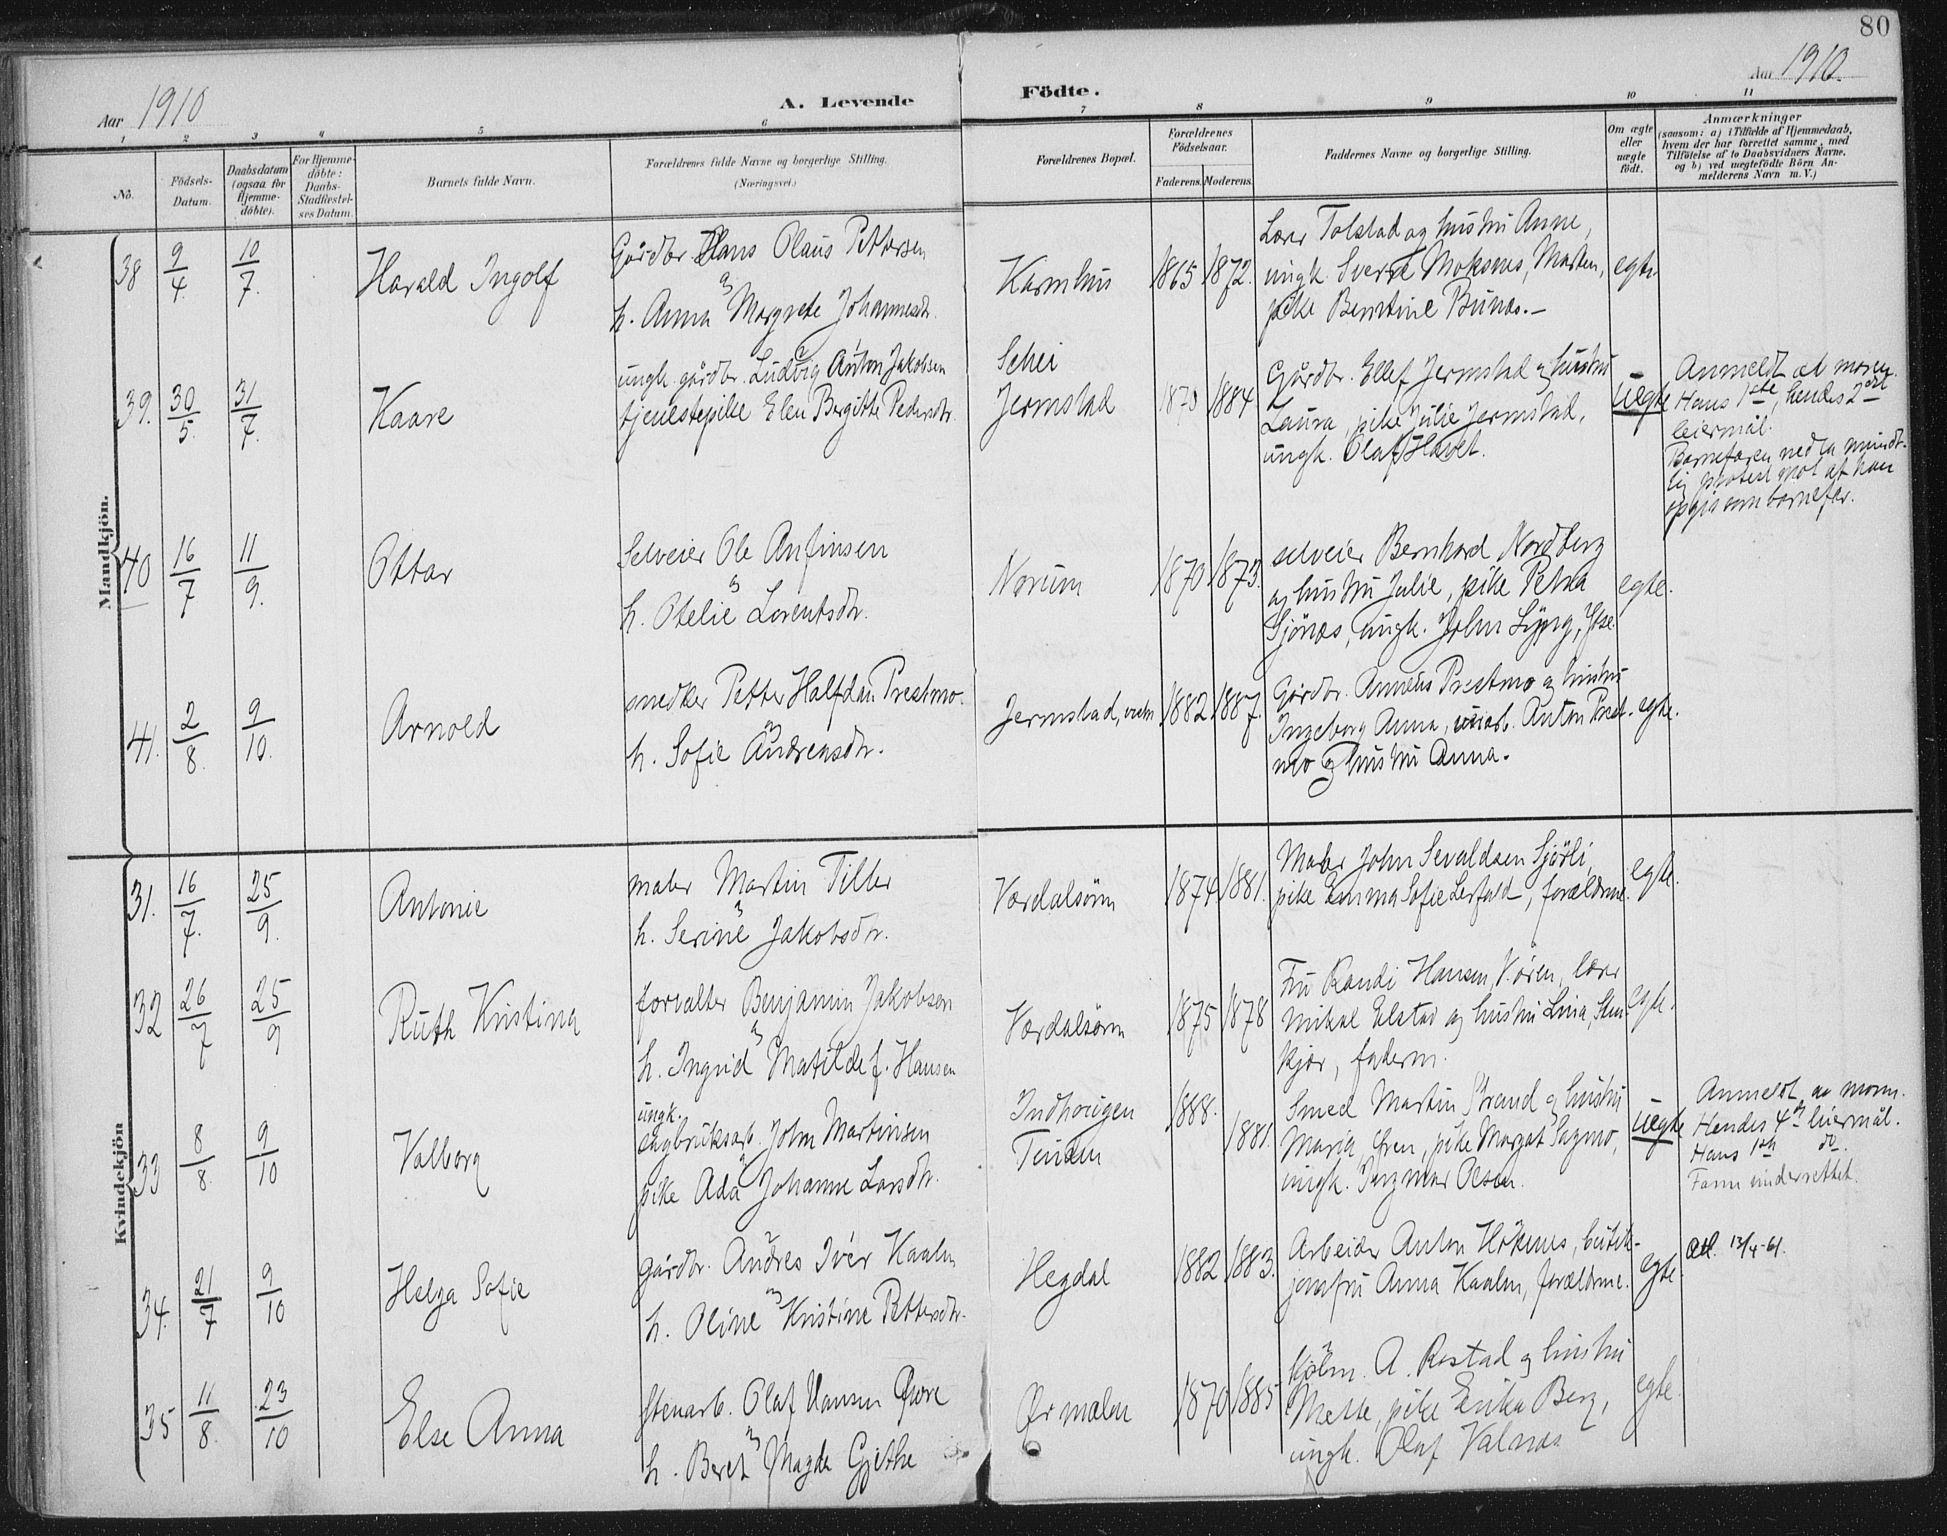 80
Aar 1910
A. Levende
Födte.
Aar 1910.
1 2 3 4 5 6 7 8 9 10 11
No.
Födsels-
Datum.
Daabsdatum
(ogsaa for
Hjemme-
döbte).
For Hjemme-
döbte:
Daabs-
Stadfæstel-
ses Datum.
Barnets fulde Navn.
Forældrenes fulde Navne og borgerlige Stilling.
(Næringsvei.)
Forældrenes Bopæl.
Forældrenes
Födselsaar.
Faderens. Moderens.
Faddernes Navne og borgerlige Stilling.
Om ægte
eller
uægte
födt.
Anmærkninger
(saasom: a) i Tilfælde af Hjemmedaab,
hvem der har forrettet samme, med
Tilföielse af to Daabsvidners Navne,
og b) ved uægtefödte Börn An-
melderens Navn m. V.)
Mandkjön.
38 9/4 10/7 Harald Ingolf
Gårdbr Hans Olaus Pettersen
h. Anna Margrete Johannesdtr.
Karmhus
1865 1872.
Lærer Tolstad og hustru Anne,
ungk. Sverre Moksnes, Marten,
pike Berntine Bunæs.-
egte
39. 30/5. 31/7. Kaare
ungk. gårdbr. Ludvig Anton Jakobsen
tjenestepike Elen Bergitte Pedersdtr.
Schei
Jermstad
1870 1884
Gårdbr. Ellef Jermstad og hustru
Laura, pike Julie Jermstad,
ungk. Olaf Havet.
uegte
Anmeldt at moren.
Hans 1ste, hendes 2det
leiermål.
Barnefaren ned la mundt-
lig protest mot at han
opgis som barnefar.
40 16/7 11/9. Ottar
Selveier Ole Anfinsen
h. Otelie Lorentsdtr.
Norum
1870 1873.
selveier Bernhard Nordberg
og hustru Julie, pike Petra
Sjönæs, ungk. John Lyng,
egte.
41. 2/8. 9/10. Arnold
snedker Petter Halfdan Prestmo.
h. Sofie Andreasdtr.
Jermstad,
1882 1887.
Gårdbr. Anneus Prestmo og hustru
Ingeborg Anna, Anton Prest-
mo og hustru Anna.
egte.
Kvindekjön
31. 16/7. 25/9. Antonie
maler Martin Tiller
h. Serine Jakobsdtr.
Værdalsörn
1874 1881.
Maler John Sevaldsen Sjörli,
pike Emma Sofie Lerfald, forældrene.
egte.
32 26/7 25/9 Ruth Kristina
forvalter Benjamin Jakobsen
h. Ingrid Matilde f. Hansen
Værdalsörn
1875 1878
Fru Randi Hansen, V.ören, lærer
Mikal Elstad og hustru Lina, Sten-
kjær, faderen.
egte.
33 8/8. 9/10 Valborg
ungk.
sagbruksarb. John Martinsen
pike Ada Johanne Larsdtr.
Indhougen
Tinden
1888.
1881.
Smed Martin Strand og hustru
Maria, Ören, pike Margat Sagmo,
ungk. Ingmar Olsen.
uegte
Anmeldt av moren.
Hendes 4de leiermål.
Hans 1ste do.
Faren underrettet.
34. 21/7 9/10 Helga Sofie
gårdbr. Andres Iver Kaalen
h. Oline Kristine Pettersdtr.
Hegdal
1882 1883.
Arbeider Anton Höknes, butik-
jomfru Anna Kaalen, forældrene.
egte.
Att. 13/4-61.
35 11/8. 23/10 Else Anna
Stenarb. Olaf Hansen Övre
h. Beret Magda Gjethe
Ørmælen
1870 1885
Kjöbm. A. Rostad og hustru
Mette, pike Erika Berg,
ungk. Olaf Valnæs
egte.